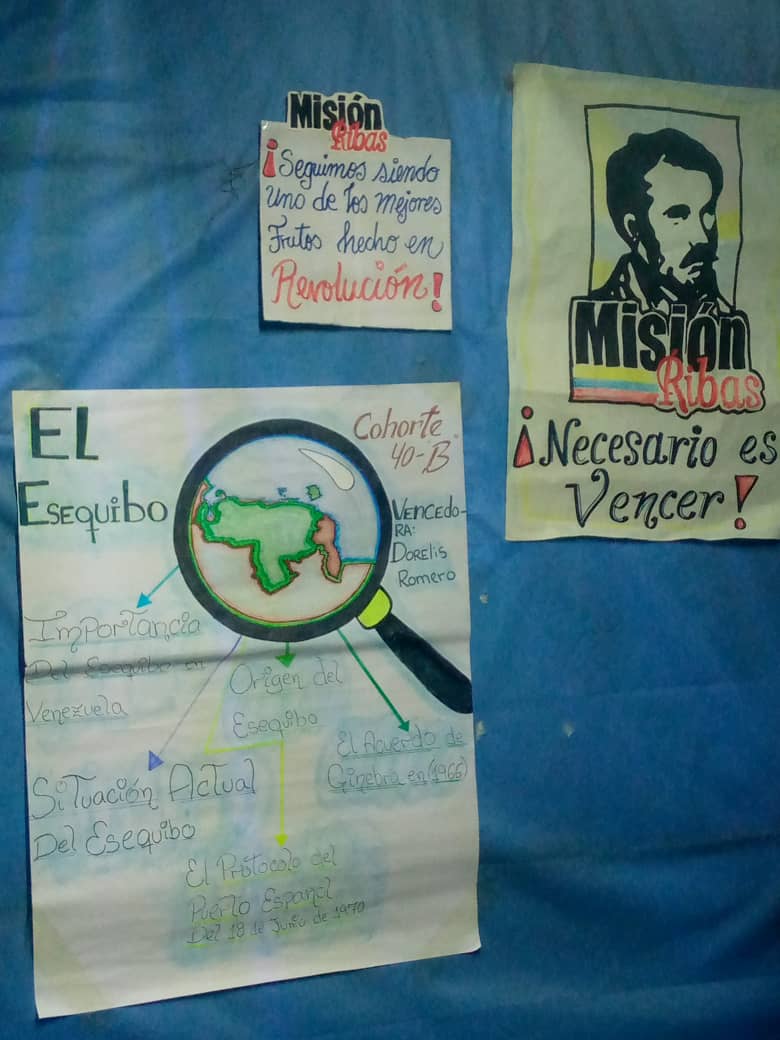 Misión
Ribas
¡Seguimos siendo
uno de los mejores
Frutos hecho en
Revolución!
Misión
Ribas
¡Necesario es
Vencer!
EL
Esequibo
Cohorte
40-"B"
Vencedo-
ra:
Dorelis
Romero
Importancia
Del Esequibo en
Venezuela
Origen del
Esequibo
El Acuerdo de
Ginebra en (1966)
Situación Actual
Del Esequibo
El Protocolo del
Puerto Español
Del 18 de Junio de 1970